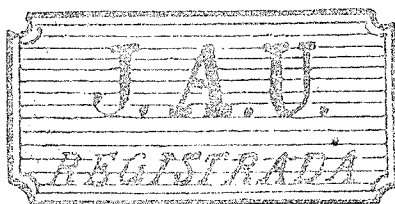 J.A.U.
REGISTRADA